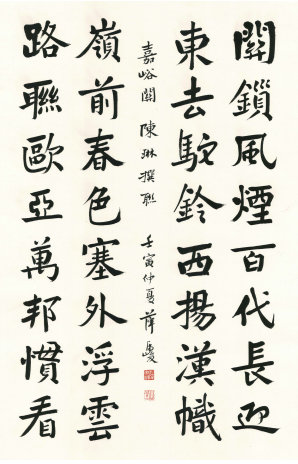 關鎖風煙百代長迎
東去駝鈴西揚漢幟
路聯歐亞萬邦慣看
嶺前春色塞外浮雲
嘉峪關 陳琳撰聯 壬寅仲夏 薛